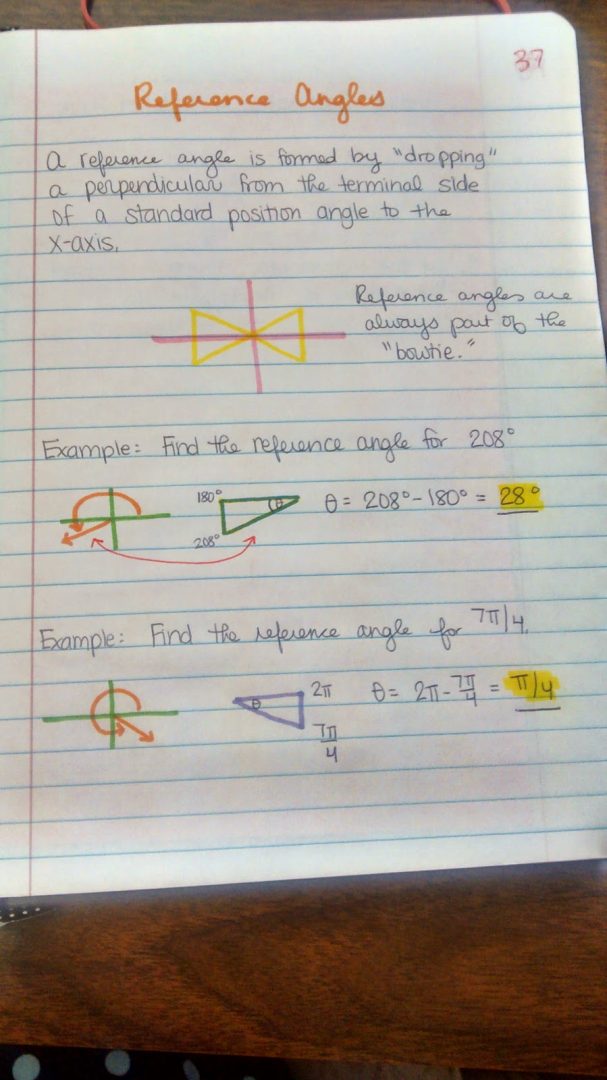 37
Reference Angles
A reference angle is formed by "dropping"
a perpendicular from the terminal side
of a standard position angle to the
x-axis.
Reference angles are
always part of the
"bowtie."
Example: Find the reference angle for 208°
180°
θ
208°
θ = 208° - 180° = 28°
Example: Find the reference angle for 7π/4.
θ
2π
7π/4
θ = 2π - 7π/4 = π/4